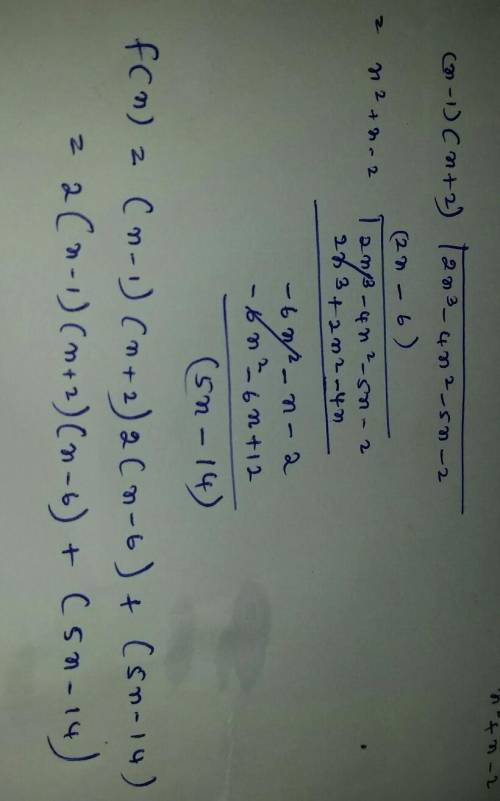 (x-1)(x+2) |2x³-4x²-5x-2
(2x-6)
= x²+x-2 |2x³-4x²-5x-2
2x³+2x²-4x
-6x²-x-2
-6x²-6x+12
(5x-14)
f(x) = (x-1)(x+2)2(x-6)+(5x-14)
= 2(x-1)(x+2)(x-6)+(5x-14)
x²+x-2